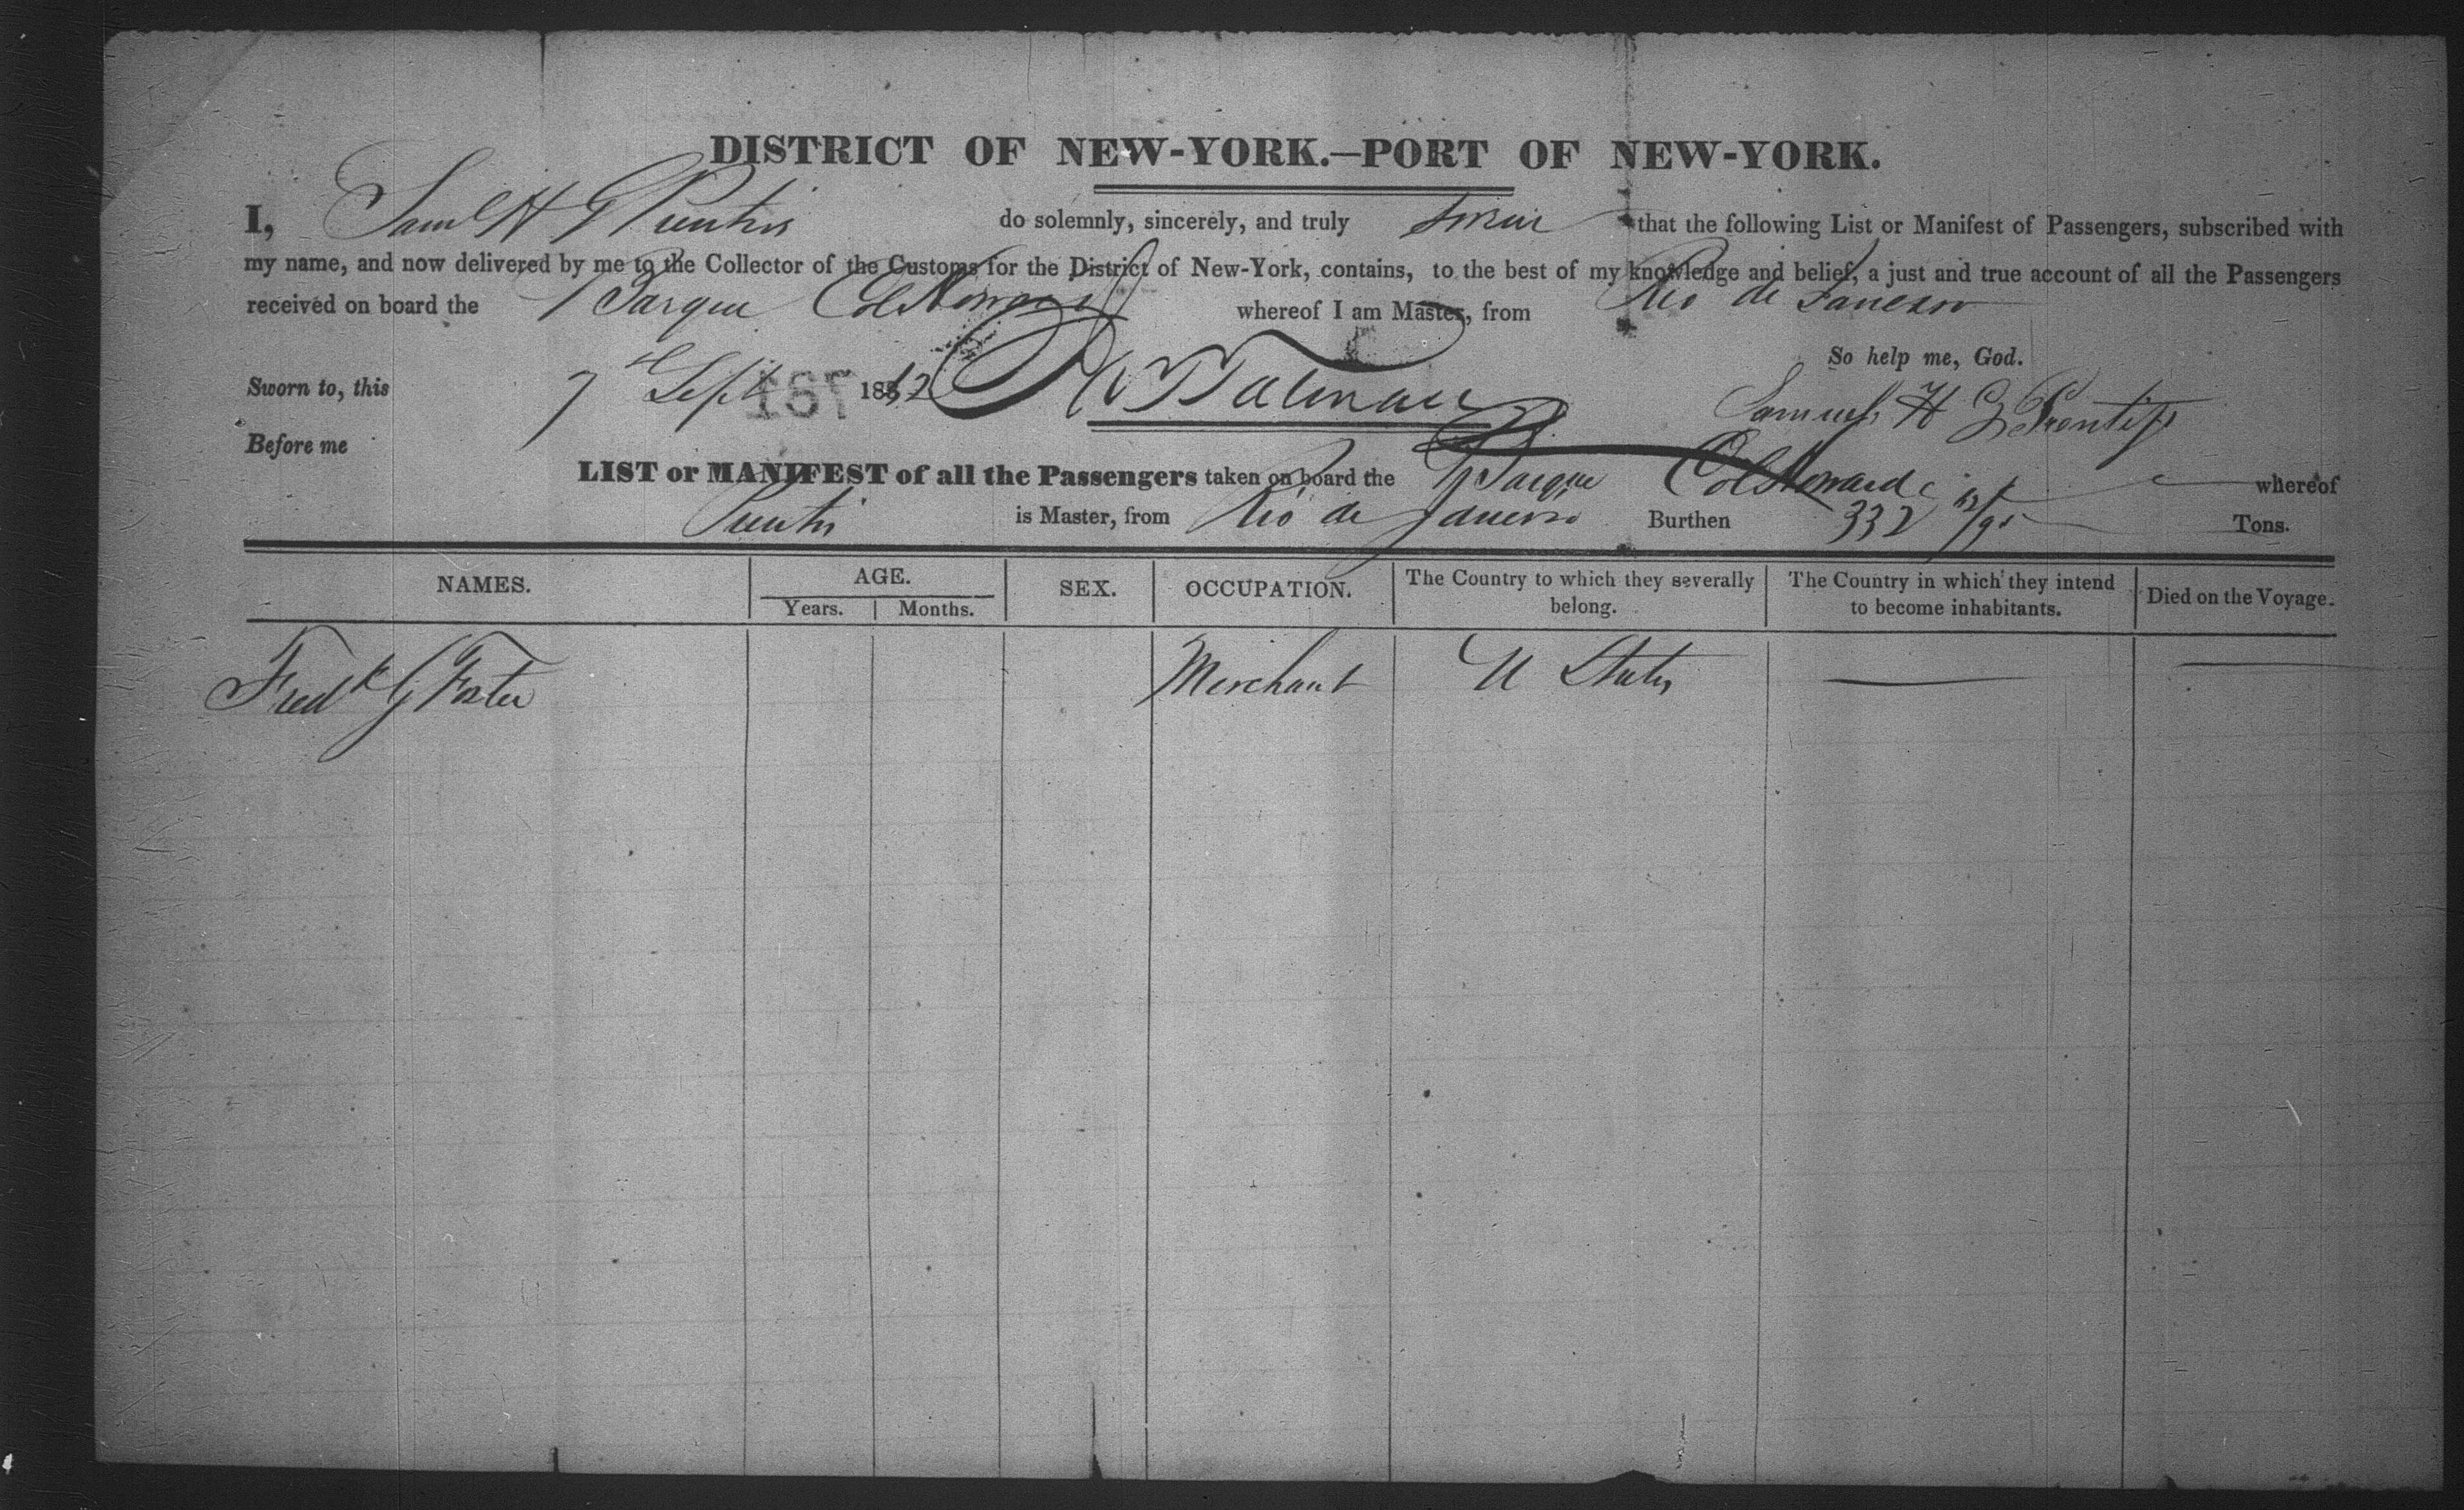 DISTRICT OF NEW-YORK.—PORT OF NEW-YORK.
I, Saml H G Prentis do solemnly, sincerely, and truly swear that the following List or Manifest of Passengers, subscribed with
my name, and now delivered by me to the Collector of the Customs for the District of New-York, contains, to the best of my knowledge and belief, a just and true account of all the Passengers
received on board the Barque Col Howard whereof I am Master, from Rio de Janeiro
So help me, God.
Sworn to, this 7th Sept 1842
Samuel H G Prentiss
Before me
LIST or MANIFEST of all the Passengers taken on board the Barque Col Howard whereof
Prentis is Master, from Rio de Janeiro Burthen 332 12/95 Tons.
NAMES. AGE. SEX. OCCUPATION. The Country to which they severally belong. The Country in which they intend to become inhabitants. Died on the Voyage.
Years. Months.
Fredk G Foster Merchant U States